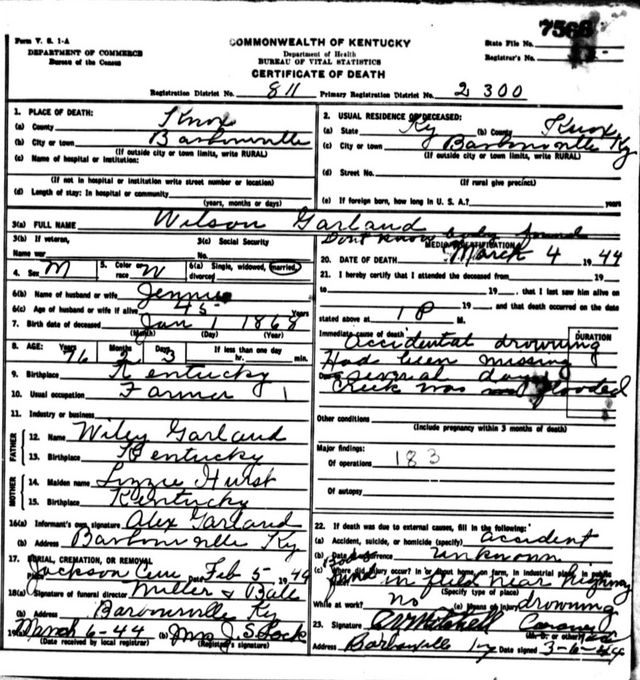 7568
Form V. S. 1-A
DEPARTMENT OF COMMERCE
Bureau of the Census
COMMONWEALTH OF KENTUCKY
Department of Health
BUREAU OF VITAL STATISTICS
CERTIFICATE OF DEATH
State File No.
Registrar's No.
Registration District No. 811 Primary Registration District No. 2300
1. PLACE OF DEATH:
(a) County Knox
(b) City or town Barbourville
(If outside city or town limits, write RURAL)
(c) Name of hospital or institution:
(If not in hospital or institution write street number or location)
(d) Length of stay: In hospital or community
(years, months or days)
2. USUAL RESIDENCE OF DECEASED:
(a) State Ky (b) County Knox
(c) City or town Barbourville Ky
(If outside city or town limits, write RURAL)
(d) Street No.
(If rural give precinct)
(e) If foreign born, how long in U. S. A.? years
3(a) FULL NAME Wilson Garland
3(b) If veteran,
Name war
3(c) Social Security
No.
4. Sex M 5. Color or race W 6(a) Single, widowed, married, divorced
6(b) Name of husband or wife Jennie
6(c) Age of husband or wife if alive 45 Years
7. Birth date of deceased Jan 1 1868
(Month) (Day) (Year)
8. AGE: Years 76 Months 2 Days 3 If less than one day
hr. min.
9. Birthplace Kentucky
10. Usual occupation Farmer 1
11. Industry or business
FATHER
12. Name Wiley Garland
13. Birthplace Kentucky
MOTHER
14. Maiden name Lizzie Hurst
15. Birthplace Kentucky
16(a) Informant's own signature Alex Garland
(b) Address Barbourville Ky
17. BURIAL, CREMATION, OR REMOVAL
Place Jackson Cem Date Feb 5 1944
18(a) Signature of funeral director Miller &
(b) Address Barbourville Ky
19(a) March 6-44 (b) Mrs J. S. Lock
(Date received by local registrar) (Registrar's signature)
Dont know body found
MEDICAL CERTIFICATION
20. DATE OF DEATH March 4 1944
21. I hereby certify that I attended the deceased from 19
to 19 , that I last saw him alive on
19 , and that death occurred on the date
stated above at 1 P M.
Immediate cause of death Accidental drowning
DURATION
Had been missing
several days
Creek was flooded
Other conditions
(Include pregnancy within 3 months of death)
Major findings:
Of operations 183
Of autopsy
22. If death was due to external causes, fill in the following:
(a) Accident, suicide, or homicide (specify) accident
(b) Date of occurrence unknown
(c) Where did injury occur? in or about home, on farm, in industrial place, in public
Body found in field near
(Specify type of place)
While at work? no (e) Means of injury drowning
23. Signature Mitchell Coroner
(M. D. or other)
Address Barbourville Ky Date signed 3-6-44